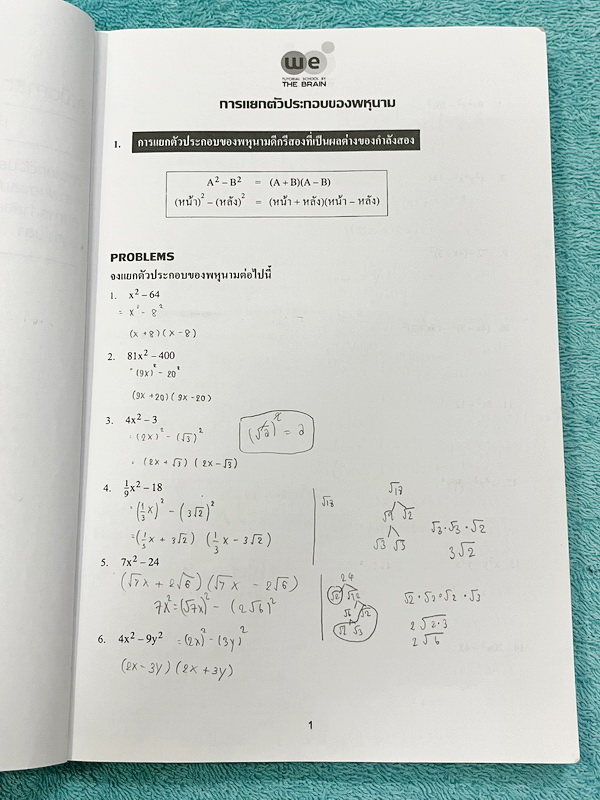 we
TUTORIAL SCHOOL BY
THE BRAIN
การแยกตัวประกอบของพหุนาม
1. การแยกตัวประกอบของพหุนามดีกรีสองที่เป็นผลต่างของกำลังสอง
A² – B² = (A + B)(A – B)
(หน้า)² – (หลัง)² = (หน้า + หลัง)(หน้า – หลัง)
PROBLEMS
จงแยกตัวประกอบของพหุนามต่อไปนี้
1. x² – 64
= x² - 8²
(x + 8)(x - 8)
2. 81x² – 400
= (9x)² - 20²
(9x + 20)(9x - 20)
3. 4x² – 3
= (2x)² - (√3)²
= (2x + √3)(2x - √3)
(√2)² = 2
4. 1/9 x² – 18
= (1/3 x)² - (3√2)²
= (1/3 x + 3√2)(1/3 x - 3√2)
√18
√18
√9 √2
√3 √3
√3 · √3 · √2
3√2
5. 7x² – 24
(√7x + 2√6)(√7x - 2√6)
7x² = (√7x)² - (2√6)²
24
√2 √12
√6 √2
√2 √3
√2 · √2 · √2 · √3
2√2·3
2√6
6. 4x² – 9y² = (2x)² - (3y)²
(2x - 3y)(2x + 3y)
1